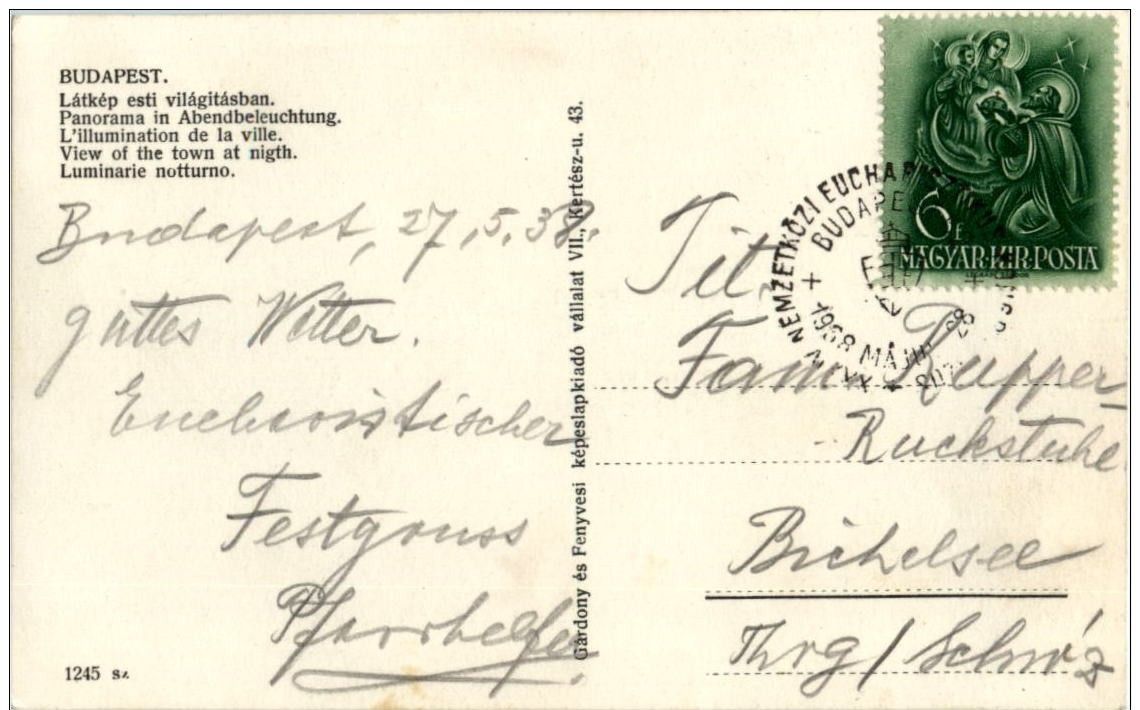 BUDAPEST.
Látkép esti világitásban.
Panorama in Abendbeleuchtung.
L'illumination de la ville.
View of the town at nigth.
Luminarie notturno.
Budapest, 27.5.38.
guttes Wetter.
Eucharistischer
Festgruss
Pfarrhelfer.
1245 sz.
Gárdony és Fenyvesi képeslapkiadó vállalat VII., Kertész-u. 43.
6 F
MAGYAR·KIR·POSTA
NEMZETKÖZI EUCHARISZTIKUS
BUDAPE
1938 MÁJ
Tit.
Fam. Rupper-
Ruckstuhl
Bichelsee
Thrg / Schwz